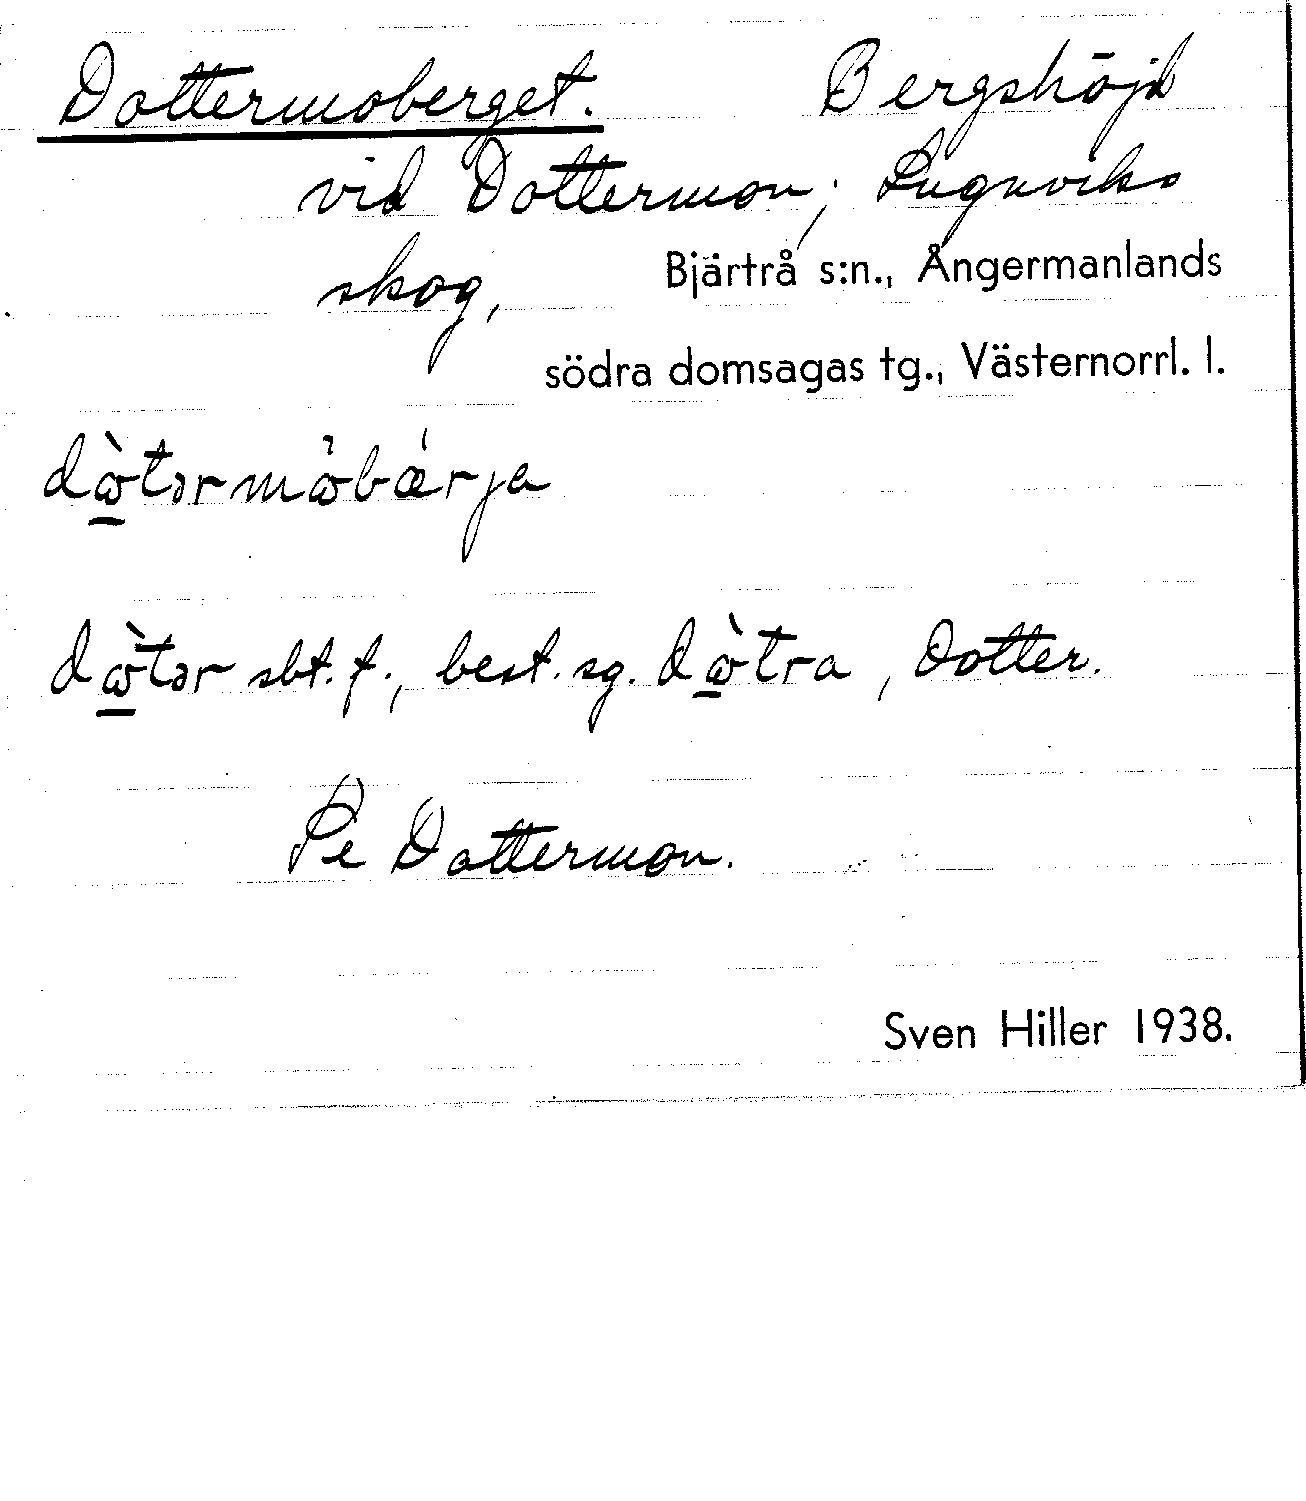 Dottermoberget. Bergshöjd
vid Dottermon; Lugnviks
skog, Bjärtrå s:n., Ångermanlands
södra domsagas tg., Västernorrl. l.
sbt. f., best. sg. , dotter.
Pe Dottermon.
Sven Hiller 1938.